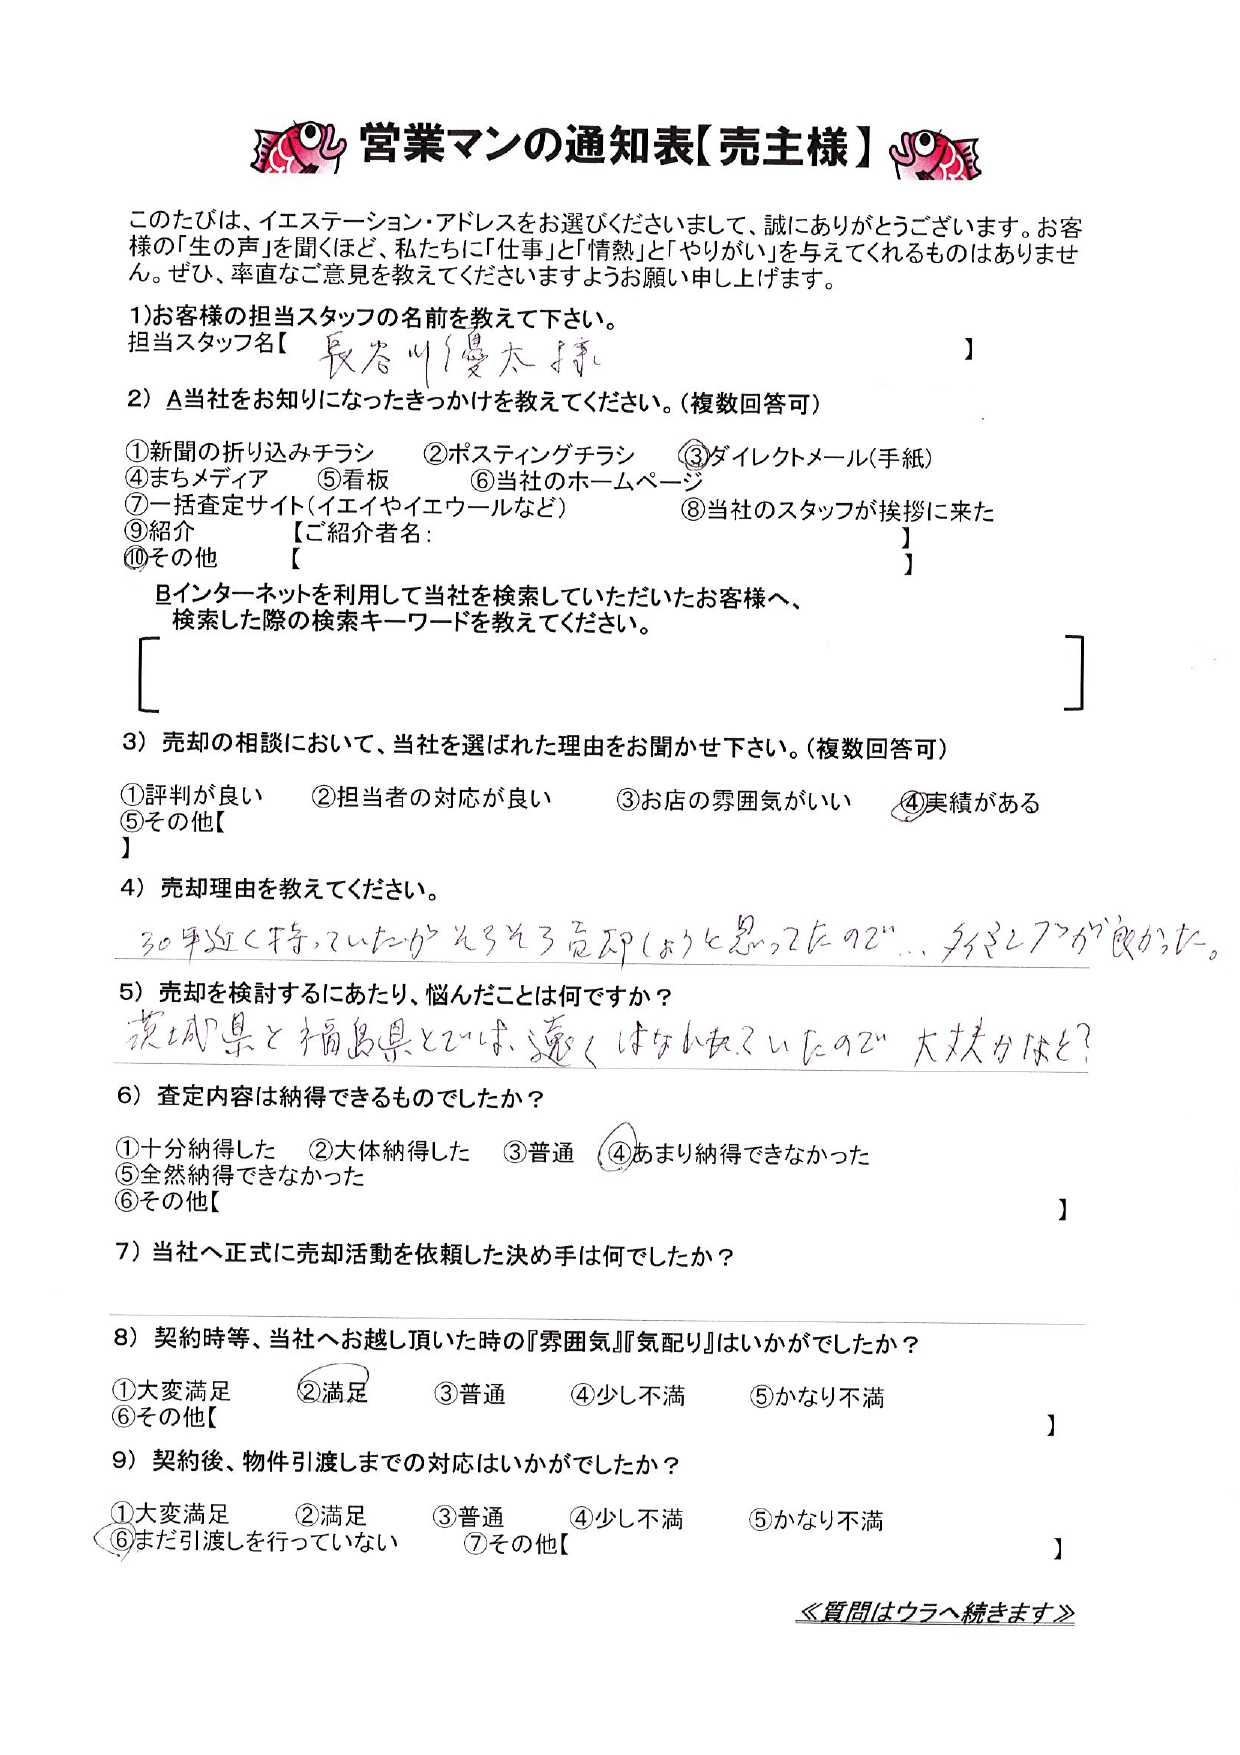 営業マンの通知表【売主様】
このたびは、イエステーション・アドレスをお選びくださいまして、誠にありがとうございます。お客
様の「生の声」を聞くほど、私たちに「仕事」と「情熱」と「やりがい」を与えてくれるものはありませ
ん。ぜひ、率直なご意見を教えてくださいますようお願い申し上げます。
1)お客様の担当スタッフの名前を教えて下さい。
担当スタッフ名【 長谷川優太様 】
2) A当社をお知りになったきっかけを教えてください。（複数回答可）
①新聞の折り込みチラシ ②ポスティングチラシ ③ダイレクトメール(手紙)
④まちメディア ⑤看板 ⑥当社のホームページ
⑦一括査定サイト(イエイやイエウールなど) ⑧当社のスタッフが挨拶に来た
⑨紹介 【ご紹介者名: 】
⑩その他 【 】
Bインターネットを利用して当社を検索していただいたお客様へ、
検索した際の検索キーワードを教えてください。
3) 売却の相談において、当社を選ばれた理由をお聞かせ下さい。（複数回答可）
①評判が良い ②担当者の対応が良い ③お店の雰囲気がいい ④実績がある
⑤その他【
】
4) 売却理由を教えてください。
30年近く持っていたがそろそろ売却しようと思ってたので… タイミングが良かった。
5) 売却を検討するにあたり、悩んだことは何ですか？
茨城県と福島県とでは、遠くはなれていたので 大丈夫かなと?
6) 査定内容は納得できるものでしたか？
①十分納得した ②大体納得した ③普通 ④あまり納得できなかった
⑤全然納得できなかった
⑥その他【 】
7) 当社へ正式に売却活動を依頼した決め手は何でしたか？
8) 契約時等、当社へお越し頂いた時の『雰囲気』『気配り』はいかがでしたか？
①大変満足 ②満足 ③普通 ④少し不満 ⑤かなり不満
⑥その他【 】
9) 契約後、物件引渡しまでの対応はいかがでしたか？
①大変満足 ②満足 ③普通 ④少し不満 ⑤かなり不満
⑥まだ引渡しを行っていない ⑦その他【 】
≪質問はウラへ続きます≫